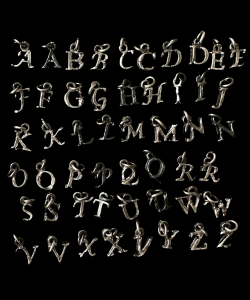 A A B B C C D D E E
F F G G H H I I J
K K L L M M N N
O O P P D O R R
S S T T U U W W
V V X X Y Y Z Z